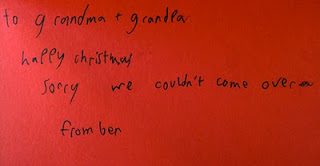 to grandma + grandpa
happy christmas
sorry we couldn't come over
from ben